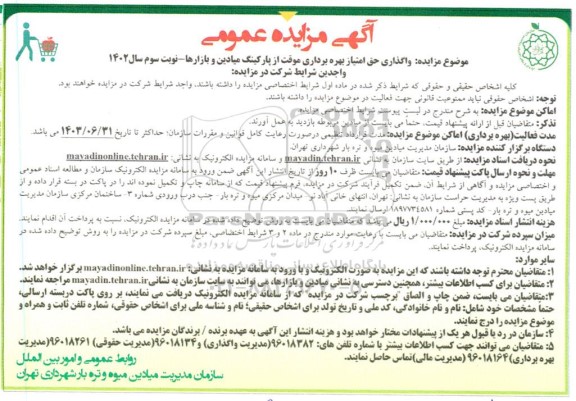 آگهی مزایده عمومی
موضوع مزایده: واگذاری حق امتیاز بهره برداری موقت از پارکینگ میادین و بازارها-نوبت سوم سال۱۴۰۲
واجدین شرایط شرکت در مزایده:
کلیه اشخاص حقیقی و حقوقی که شرایط ذکر شده در ماده اول شرایط اختصاصی مزایده را داشته باشند، واجد شرایط شرکت در مزایده خواهند بود.
توجه: اشخاص حقوقی نباید ممنوعیت قانونی جهت فعالیت در موضوع مزایده را داشته باشند.
اماکن موضوع مزایده: به شرح مندرج در لیست پیوست شرایط اختصاصی مزایده.
تذکر: متقاضیان قبل از ارائه پیشنهاد قیمت، حتماً می بایست از میادین و بازارهای مربوطه بازدید به عمل آورند.
مدت فعالیت(بهره برداری) اماکن موضوع مزایده: تنظیمی درصورت رعایت کامل قوانین و مقررات سازمان؛ حداکثر تا تاریخ ۱۴۰۳/۰۶/۳۱ می باشد.
دستگاه برگزار کننده مزایده: سازمان مدیریت میادین میوه و تره بار شهرداری تهران
نحوه دریافت اسناد مزایده: از طریق سایت سازمان به نشانی: mayadin.tehran.ir و سامانه مزایده الکترونیک به نشانی: mayadinonline.tehran.ir
مهلت و نحوه ارسال پاکت پیشنهاد قیمت: متقاضیان می بایست ظرف ۱۰ روز از تاریخ انتشار این آگهی ضمن ورود به سامانه مزایده الکترونیک سازمان و مطالعه اسناد عمومی
و اختصاصی مزایده و آگاهی از شرایط آن، ضمن تکمیل فرآیند شرکت در مزایده، فرم پیشنهاد قیمت که از سامانه چاپ و تکمیل نموده اند را در پاکت در بسته قرار داده و از
طریق پست ویژه به مدیریت حراست سازمان به نشانی: تهران، انتهای خیابان میدان مرکزی میوه و تره بار - جنب درب ورودی شماره ۳ - ساختمان مرکزی سازمان مدیریت
میادین میوه و تره بار - کد پستی شماره ۱۸۹۷۷۳۴۵۸۱ ارسال نمایند.
هزینه انتشار اسناد مزایده: مبلغ ۱/۰۰۰/۰۰۰ ریال مزایده الکترونیک، نسبت به پرداخت آن اقدام نمایند.
میزان سپرده شرکت در مزایده: متقاضیان می بایست با رعایت موارد مندرج در ماده ۲ و ۳ شرایط اختصاصی، مبلغ سپرده شرکت در مزایده را به روش توضیح داده شده در
سامانه مزایده الکترونیک، پرداخت نمایند.
سایر موارد:
۱: متقاضیان محترم توجه داشته باشند که این مزایده به صورت الکترونیک و با ورود به سامانه مزایده به نشانی: mayadinonline.tehran.ir برگزار خواهد شد.
۲: متقاضیان برای کسب اطلاعات بیشتر، همچنین دسترسی به نشانی میادین و بازارها می توانند به سایت سازمان به نشانی mayadin.tehran.ir مراجعه نمایند.
۳: متقاضیان می بایست، ضمن چاپ و الصاق "برچسب شرکت در مزایده" که از سامانه مزایده الکترونیک دریافت می نمایند، بر روی پاکت دربسته ارسالی،
حتماً مشخصات خود شامل: نام و نام خانوادگی، کد ملی و تاریخ تولد برای اشخاص حقیقی؛ نام و شناسه ملی برای اشخاص حقوقی، شماره تلفن ثابت و همراه و
موضوع مزایده را درج نمایند.
۴: سازمان در رد یا قبول هر یک از پیشنهادات مختار خواهد بود و هزینه انتشار این آگهی به عهده برنده / برندگان مزایده می باشد.
۵: متقاضیان می توانند جهت کسب اطلاعات بیشتر با شماره تلفن های: ۹۶۰۱۸۳۸۲(مدیریت واگذاری) و ۹۶۰۱۸۱۳۴(مدیریت حقوقی) ۹۶۰۱۸۲۶۱(مدیریت
بهره برداری) ۹۶۰۱۸۱۶۴(مدیریت مالی) تماس حاصل نمایند.
روابط عمومی و امور بین الملل
سازمان مدیریت میادین میوه و تره بار شهرداری تهران